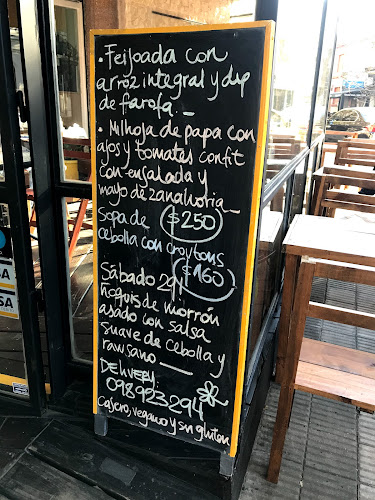 • Feijoada con
arroz integral y dip
de farofa.-
• Milhoja de papa con
ajos y tomates confit
con ensalada y
mayo de zanahoria_
$250
Sopa de
cebolla con croytons
$160
Sábado 29/
Ñoquis de morrón
asado con salsa
suave de cebolla y
rawsano —
DELIVERY:
098923294
Casero, vegano y sin gluten